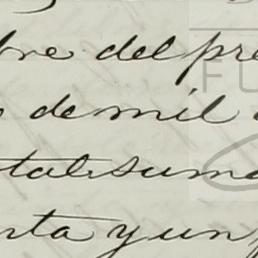 bre del pre
de mil
tal suma
nta y un